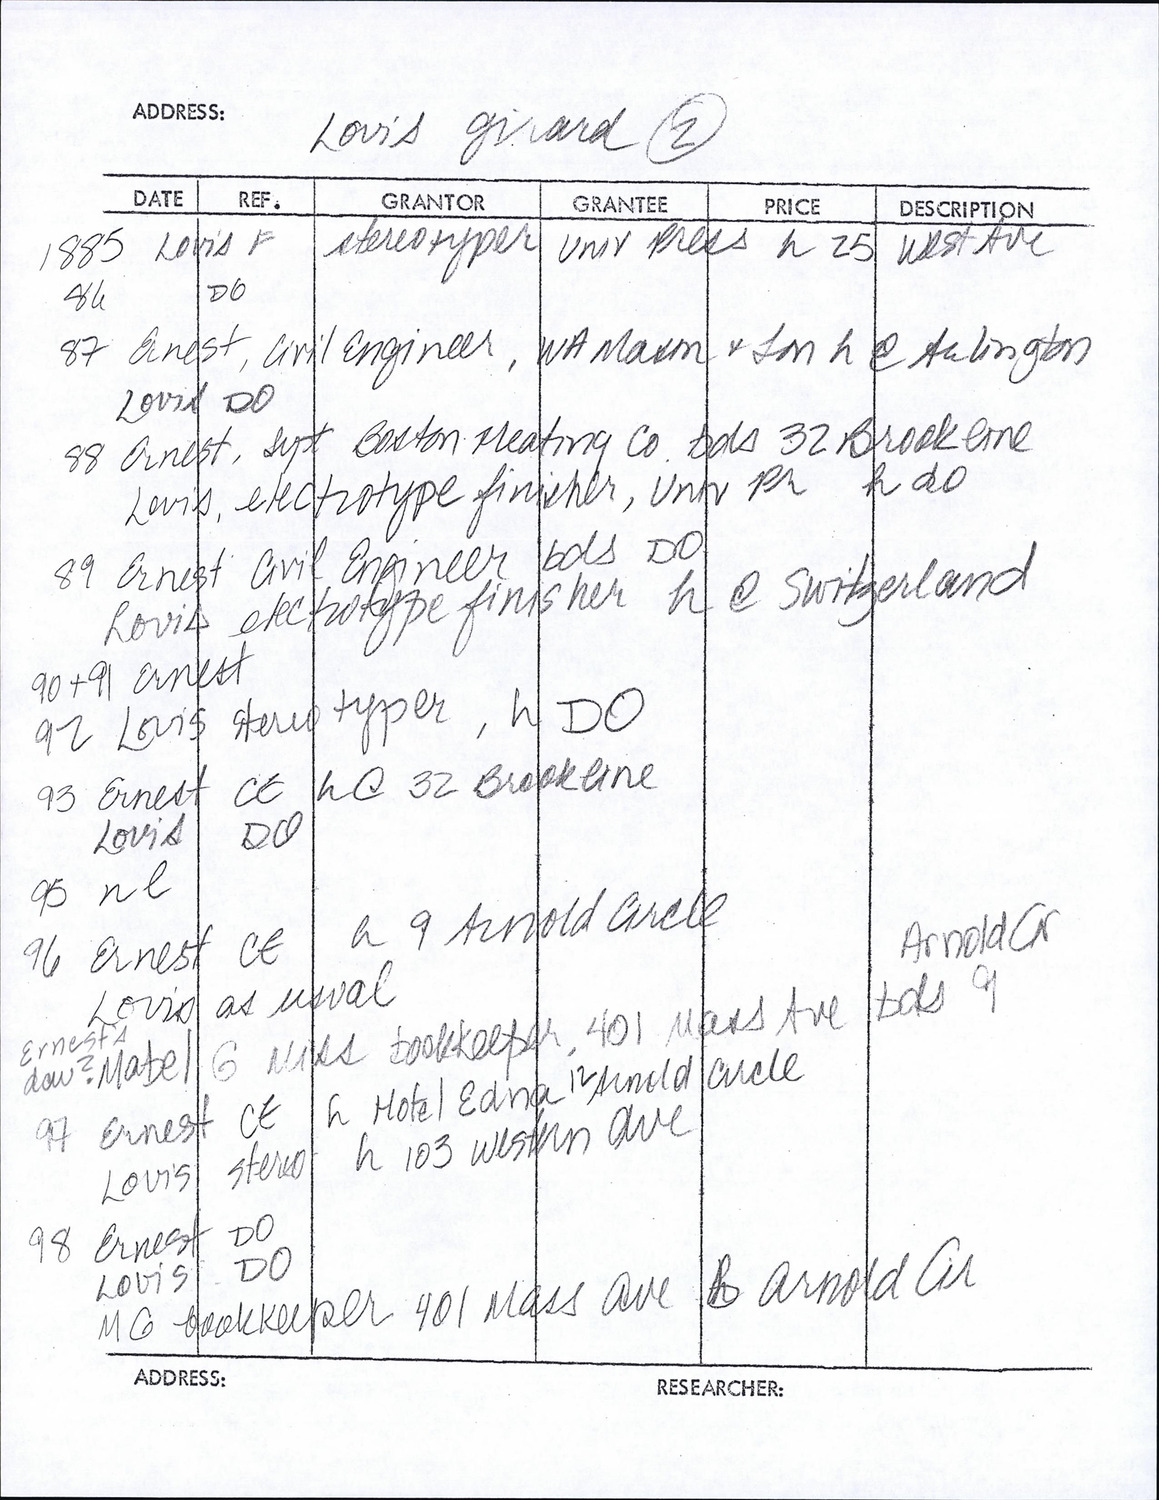 ADDRESS:
Louis Girard 2
DATE REF. GRANTOR GRANTEE PRICE DESCRIPTION
1885 Louis F stereotyper Univ Press h 25 West Ave
86 DO
87 Ernest, Civil Engineer, WA Mason + Son h @ Arlington
Louis DO
88 Ernest, Supt Boston Heating Co. bds 32 Brookline
Louis, electrotype finisher, Univ Pr h do
89 Ernest Civil Engineer bds DO
Louis electrotype finisher h @ Switzerland
90+91 Ernest
92 Louis stereotyper, h DO
93 Ernest CE h @ 32 Brookline
Louis DO
95 nl
96 Ernest CE h 9 Arnold Circle
Louis as usual
Arnold Cir
Ernest's
dau? Mabel G Miss bookkeeper, 401 Mass Ave bds 9
97 Ernest CE h Hotel Edna 12 Arnold Circle
Louis stereo h 103 Western Ave
98 Ernest DO
Louis DO
MG bookkeeper 401 Mass Ave B Arnold Cir
ADDRESS:
RESEARCHER: